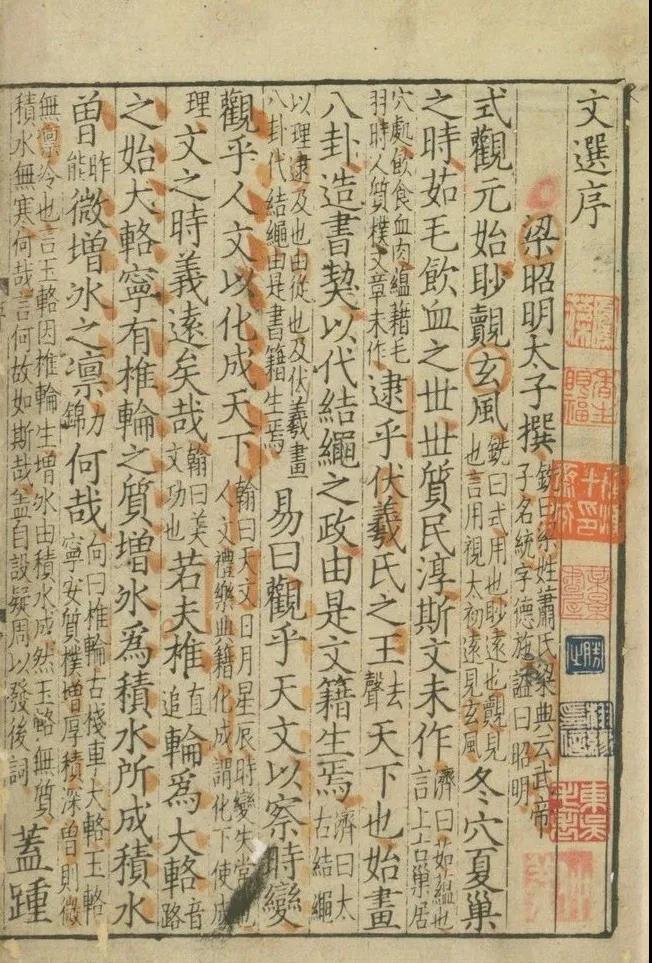 文選序
梁昭明太子撰銑曰系姓蕭氏梁典云武帝子名統字德施諡曰昭明
式觀元始眇覿玄風銑曰式用也眇遠也覿見也言用視太初遠見玄風冬穴夏巢
之時茹毛飲血之丗丗質民淳斯文未作濟曰茹緼也言上古巢居
穴處飲食血肉緼藉毛羽時人質樸文章未作逮乎伏羲氏之王去聲天下也始畫
八卦造書契以代結繩之政由是文籍生焉濟曰太古結繩
以理逮及也由從也及伏羲畫八卦代結繩由是書籍生焉易曰觀乎天文以察時變
觀乎人文以化成天下翰曰天文日月星辰時變失常也人文禮樂典籍化成謂化下使成
理文之時義遠矣哉翰曰美文功也若夫椎直追輪爲大輅音路
之始大輅寧有椎輪之質增氷爲積水所成積水
曽昨能微增氷之凛力錦何哉向曰椎輪古棧車大輅玉輅寧安質樸增厚積深曽則微
無凛冷也言玉輅因椎輪生增氷由積水成然玉輅無質積水無寒何哉言何故如斯哉蓋自設疑周以發後詞蓋踵